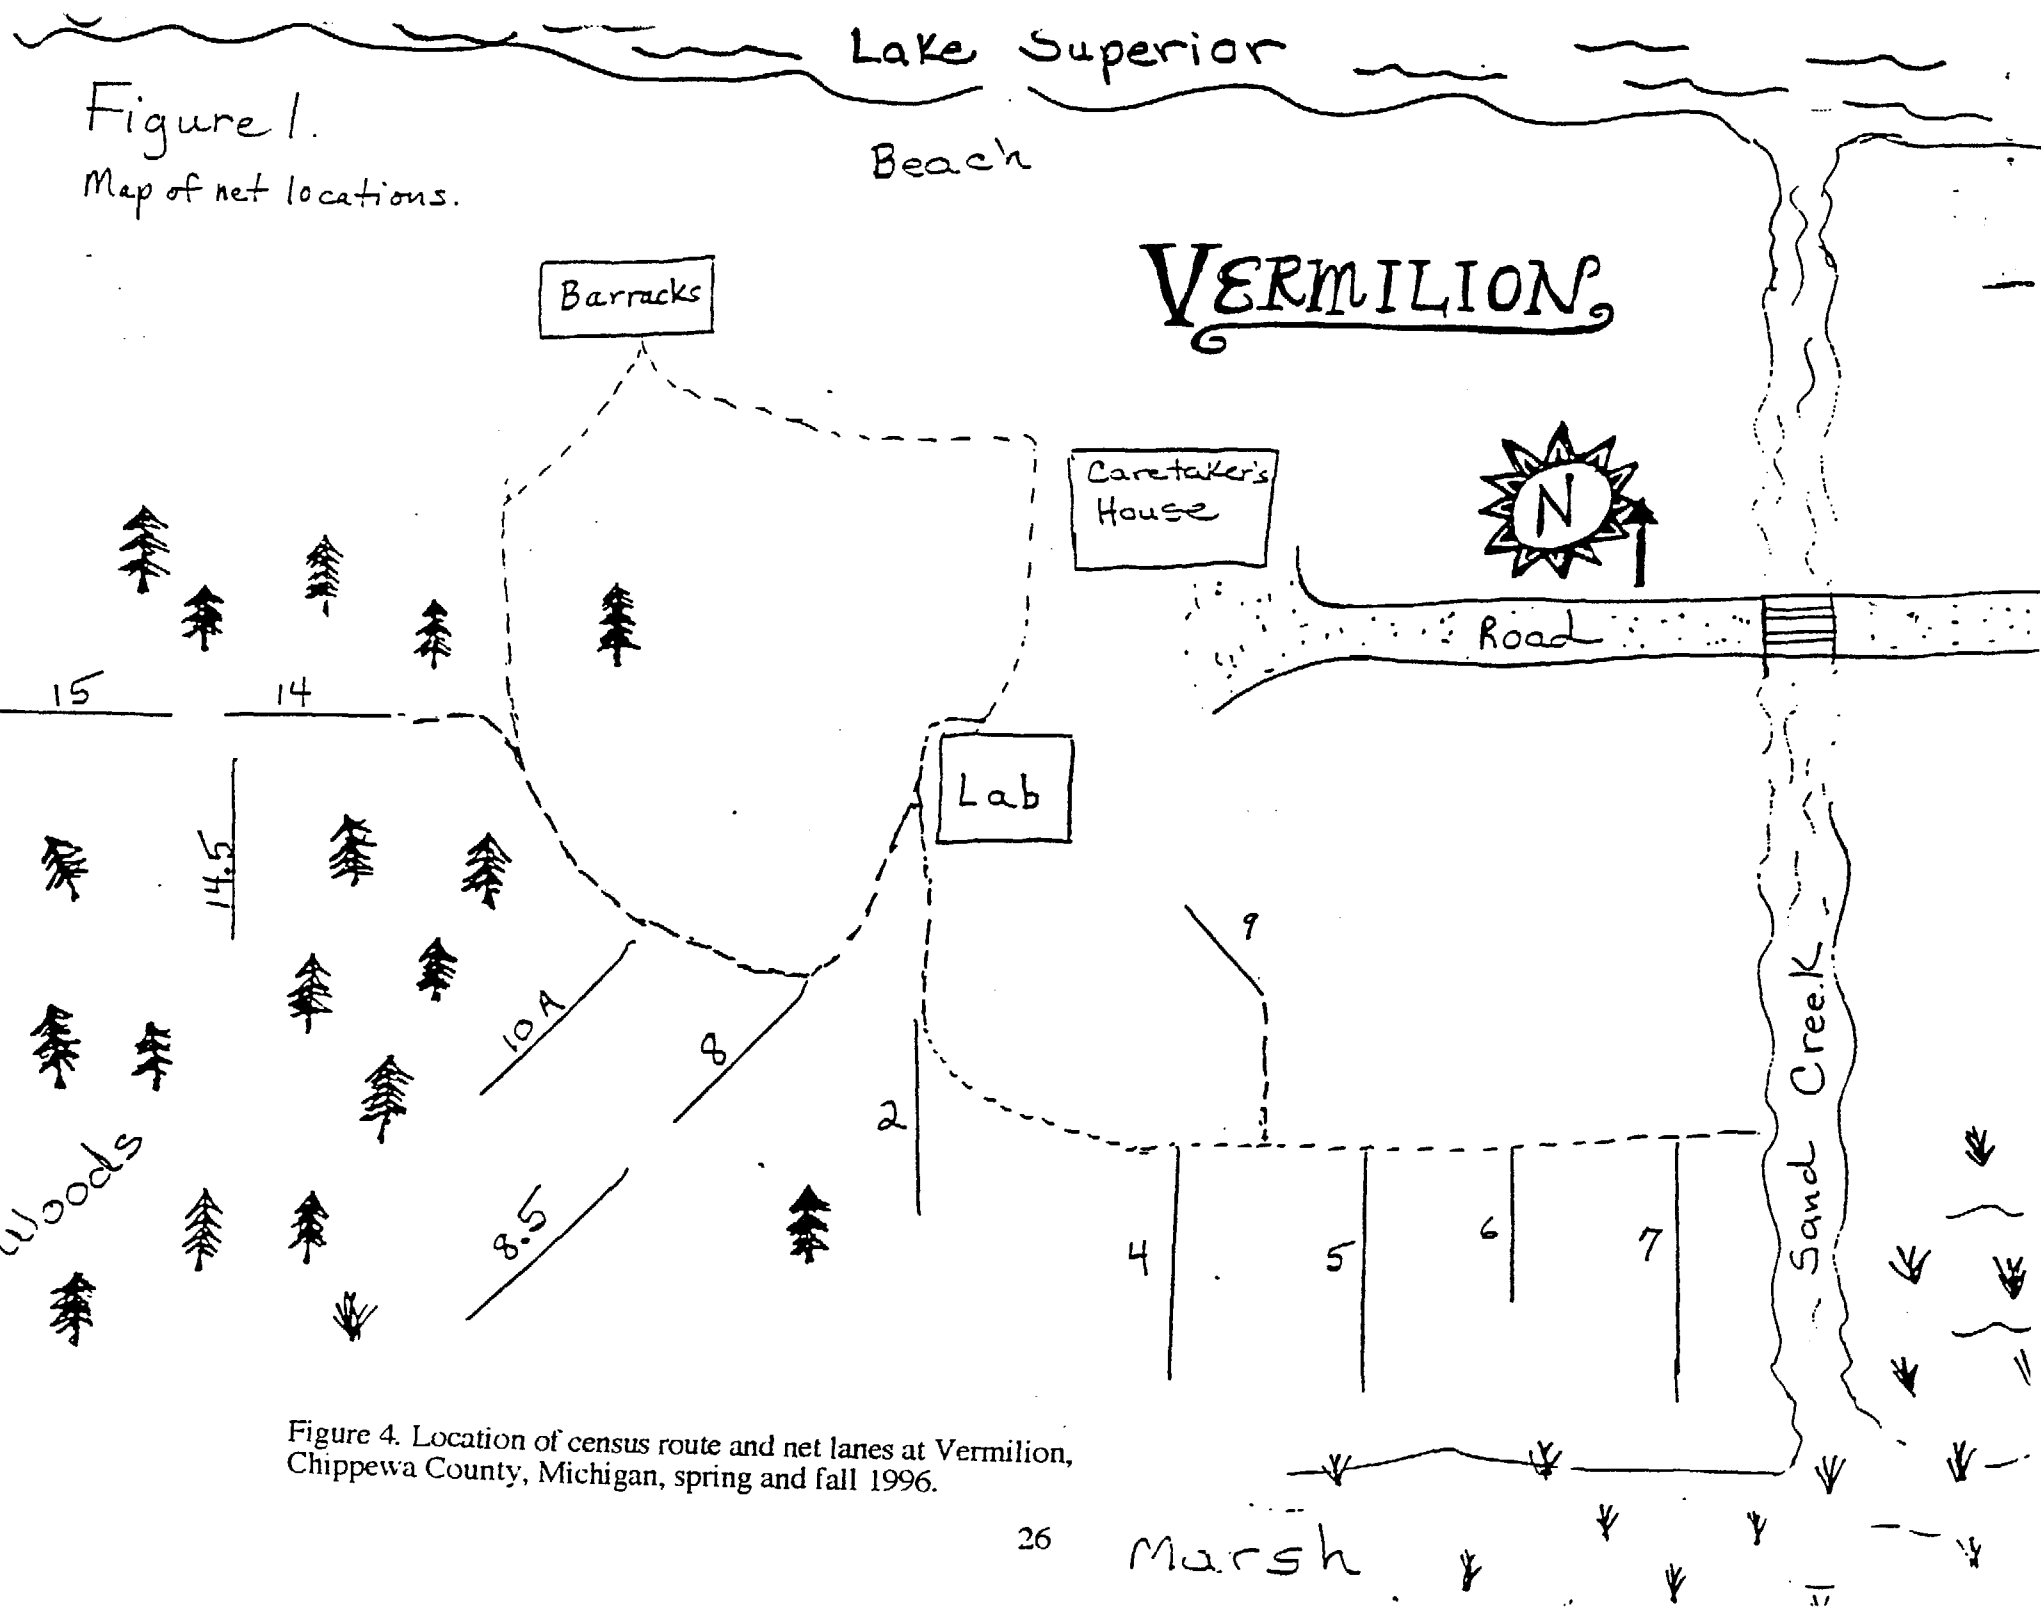 Lake Superior
Figure 1.
Map of net locations.
Beach
VERMILION
Barracks
Caretaker's
House
N
Road
15
14
Lab
14.5
9
10A
8
2
Sand Creek
Woods
8.5
4
5
6
7
Figure 4. Location of census route and net lanes at Vermilion,
Chippewa County, Michigan, spring and fall 1996.
26
Marsh